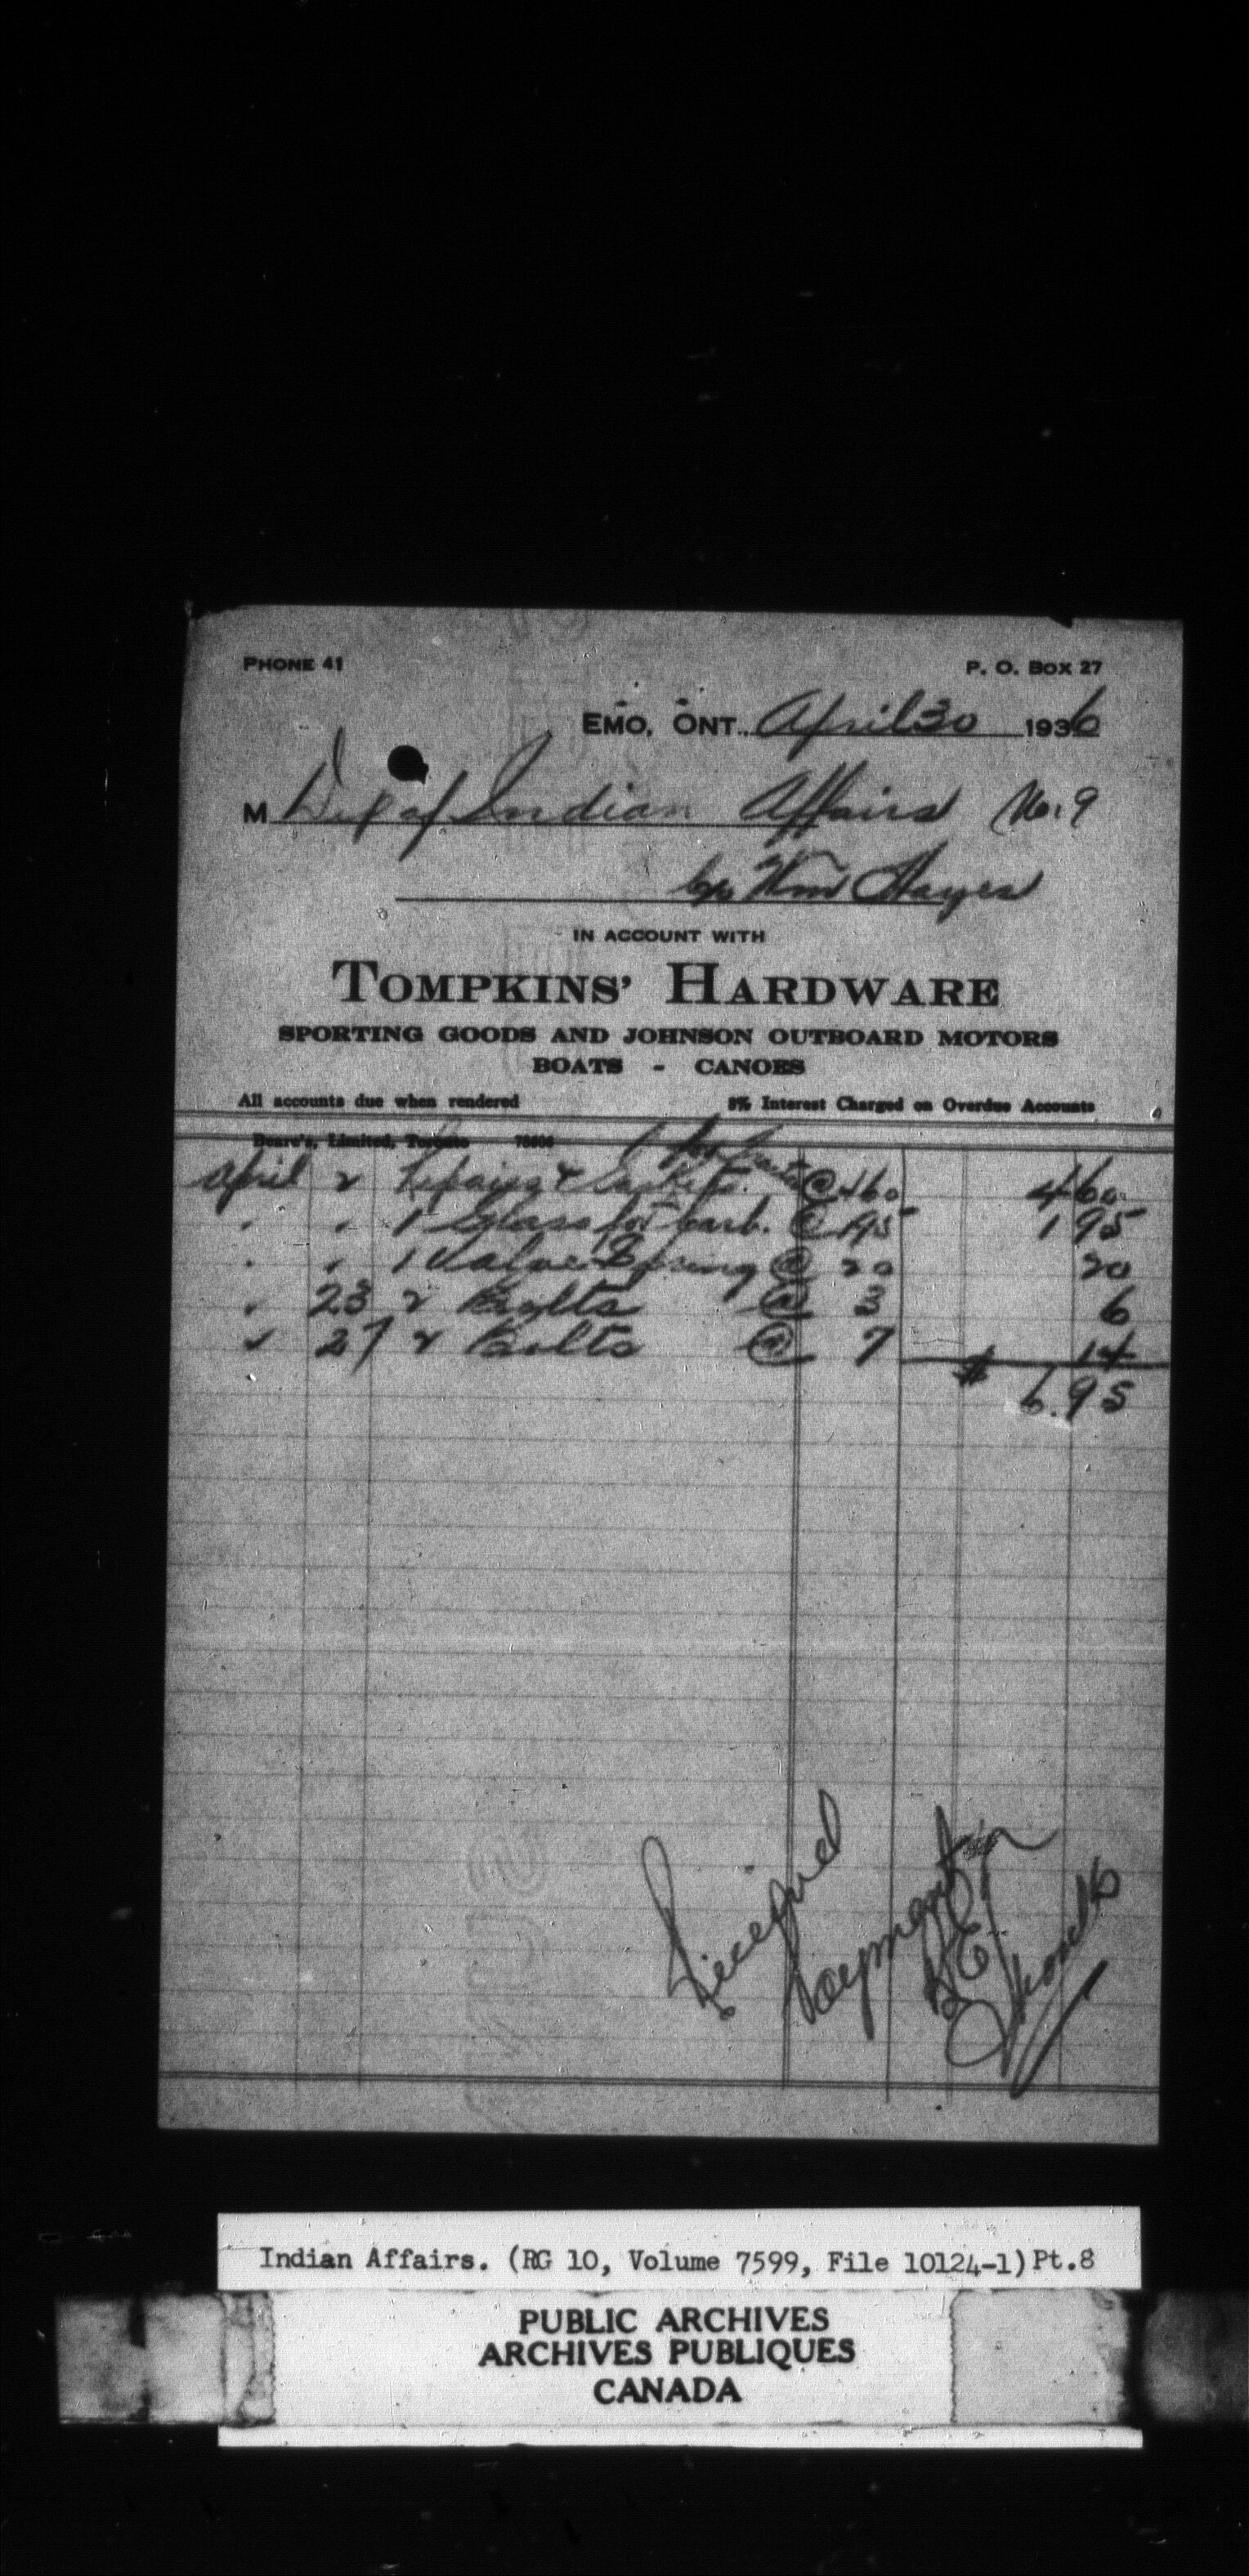 PHONE 41 P. O. BOX 27
EMO, ONT., April 30 1936
M Dep of Indian Affairs No. 9
c/o Wm Hayes
IN ACCOUNT WITH
TOMPKINS' HARDWARE
SPORTING GOODS AND JOHNSON OUTBOARD MOTORS
BOATS - CANOES
All accounts due when rendered 8% Interest Charged on Overdue Accounts
Beare's, Limited, Toronto
April 2 Repairs & Gaskets. @ 460 460
" " 1 Glass for carb. @ 195 195
" " 1 Valve Spring @ 20 20
" 23 2 Bolts @ 3 6
" 27 2 Bolts @ 7 14
$ 6.95
Received
payment
Indian Affairs. (RG 10, Volume 7599, File 10124-1) Pt.8
PUBLIC ARCHIVES
ARCHIVES PUBLIQUES
CANADA